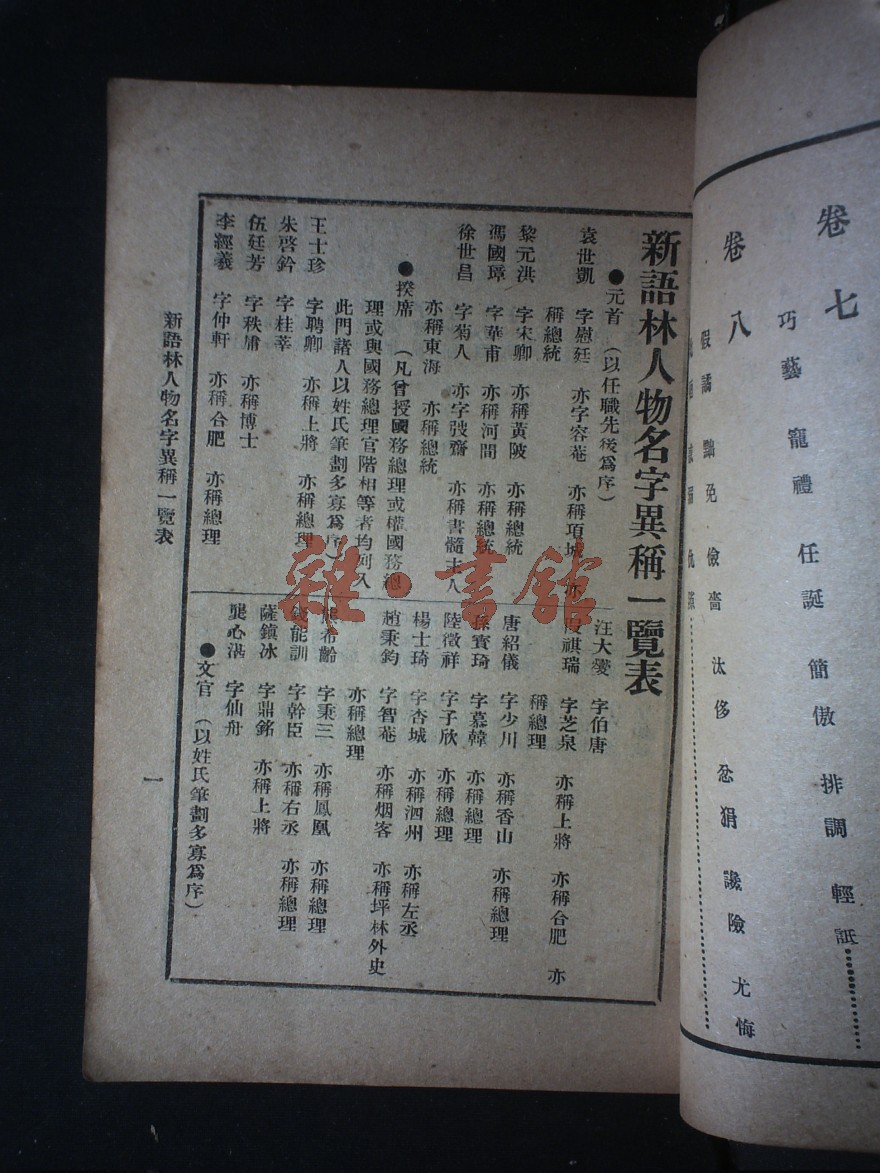 卷七
巧藝 寵禮 任誕 簡傲 排調 輕詆
卷八
假譎 黜免 儉嗇 汰侈 忿狷 讒險 尤悔
新語林人物名字異稱一覽表
●元首 (以任職先後爲序)
袁世凱 字慰廷 亦字容菴 亦稱項城 亦
稱總統
黎元洪 字宋卿 亦稱黃陂 亦稱總統
馮國璋 字華甫 亦稱河間 亦稱總統
徐世昌 字菊人 亦字弢齋 亦稱書髓主人
亦稱東海 亦稱總統
●揆席 (凡曾授國務總理或權國務總
理或與國務總理官階相等者均列入
此門諸人以姓氏筆劃多寡爲序)
王士珍 字聘卿 亦稱上將 亦稱總理
朱啓鈐 字桂莘
伍廷芳 字秩庸 亦稱博士
李經羲 字仲軒 亦稱合肥 亦稱總理
汪大燮 字伯唐
段祺瑞 字芝泉 亦稱上將 亦稱合肥 亦
稱總理
唐紹儀 字少川 亦稱香山 亦稱總理
孫寶琦 字慕韓 亦稱總理
陸徵祥 字子欣 亦稱總理
楊士琦 字杏城 亦稱泗州 亦稱左丞
趙秉鈞 字智菴 亦稱烟客 亦稱坪林外史
亦稱總理
熊希齡 字秉三 亦稱鳳凰 亦稱總理
錢能訓 字幹臣 亦稱右丞 亦稱總理
薩鎮冰 字鼎銘 亦稱上將
龔心湛 字仙舟
●文官 (以姓氏筆劃多寡爲序)
新語林人物名字異稱一覽表
一
雜·書館